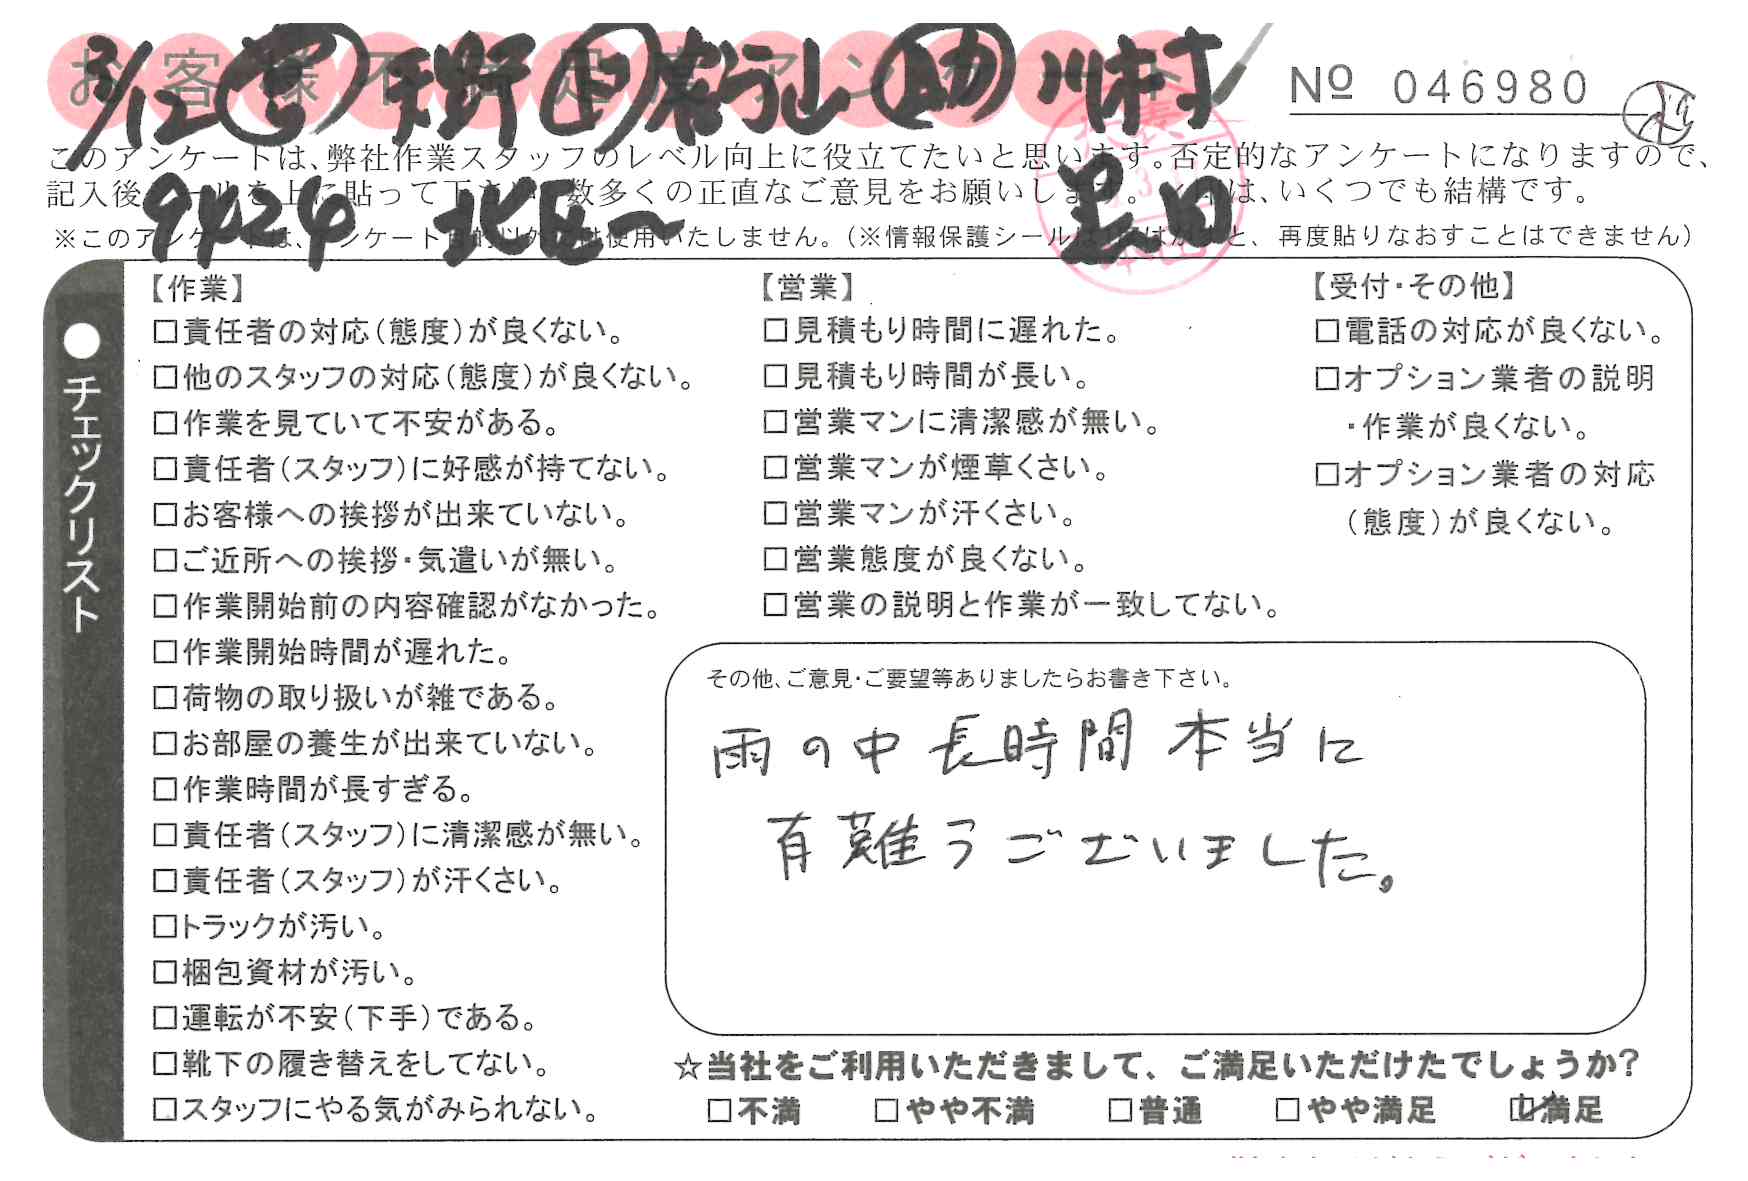 お客様不満足度アンケート
3/12 天野 川村
No 046980
このアンケートは、弊社作業スタッフのレベル向上に役立てたいと思います。否定的なアンケートになりますので、
記入後シールを上に貼って下さい。数多くの正直なご意見をお願いします。✓印は、いくつでも結構です。
9424 北区〜 黒田
※このアンケートは、アンケート目的以外では使用いたしません。(※情報保護シールは1度はがすと、再度貼りなおすことはできません)
●チェックリスト
【作業】
□責任者の対応(態度)が良くない。
□他のスタッフの対応(態度)が良くない。
□作業を見ていて不安がある。
□責任者(スタッフ)に好感が持てない。
□お客様への挨拶が出来ていない。
□ご近所への挨拶・気遣いが無い。
□作業開始前の内容確認がなかった。
□作業開始時間が遅れた。
□荷物の取り扱いが雑である。
□お部屋の養生が出来ていない。
□作業時間が長すぎる。
□責任者(スタッフ)に清潔感が無い。
□責任者(スタッフ)が汗くさい。
□トラックが汚い。
□梱包資材が汚い。
□運転が不安(下手)である。
□靴下の履き替えをしてない。
□スタッフにやる気がみられない。
【営業】
□見積もり時間に遅れた。
□見積もり時間が長い。
□営業マンに清潔感が無い。
□営業マンが煙草くさい。
□営業マンが汗くさい。
□営業態度が良くない。
□営業の説明と作業が一致してない。
【受付・その他】
□電話の対応が良くない。
□オプション業者の説明
・作業が良くない。
□オプション業者の対応
(態度)が良くない。
その他、ご意見・ご要望等ありましたらお書き下さい。
雨の中長時間本当に
有難うございました。
☆当社をご利用いただきまして、ご満足いただけたでしょうか?
□不満 □やや不満 □普通 □やや満足 ☑満足